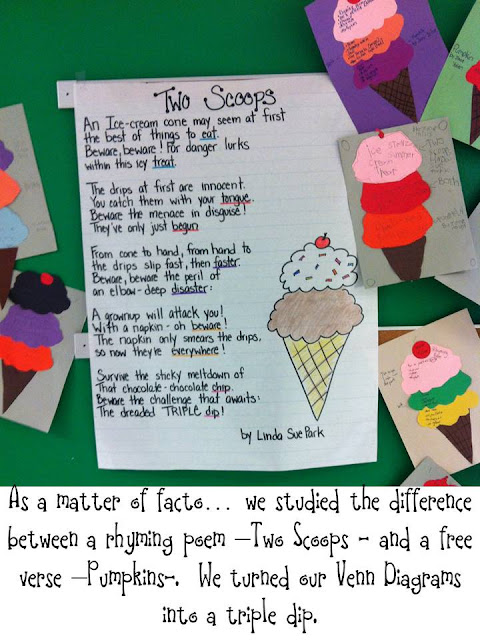 Two Scoops
An Ice-cream cone may, seem at first
the best of things to eat.
Beware, beware! For danger lurks
within this icy treat.
The drips at first are innocent.
You catch them with your tongue.
Beware the menace in disguise!
They've only just begun
From cone to hand, from hand to
the drips slip fast, then faster.
Beware, beware the peril of
an elbow-deep disaster:
A grownup will attack you!
With a napkin - oh beware!
The napkin only smears the drips,
so now they're everywhere!
Survive the sticky meltdown of
That chocolate-chocolate chip.
Beware the challenge that awaits:
The dreaded TRIPLE dip!
by Linda Sue Park
As a matter of facto... we studied the difference
between a rhyming poem –Two Scoops – and a free
verse –Pumpkins–. We turned our Venn Diagrams
into a triple dip.